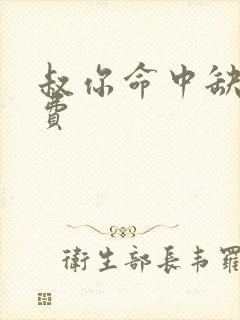 叔你命中缺
費
衛生部長韦羅